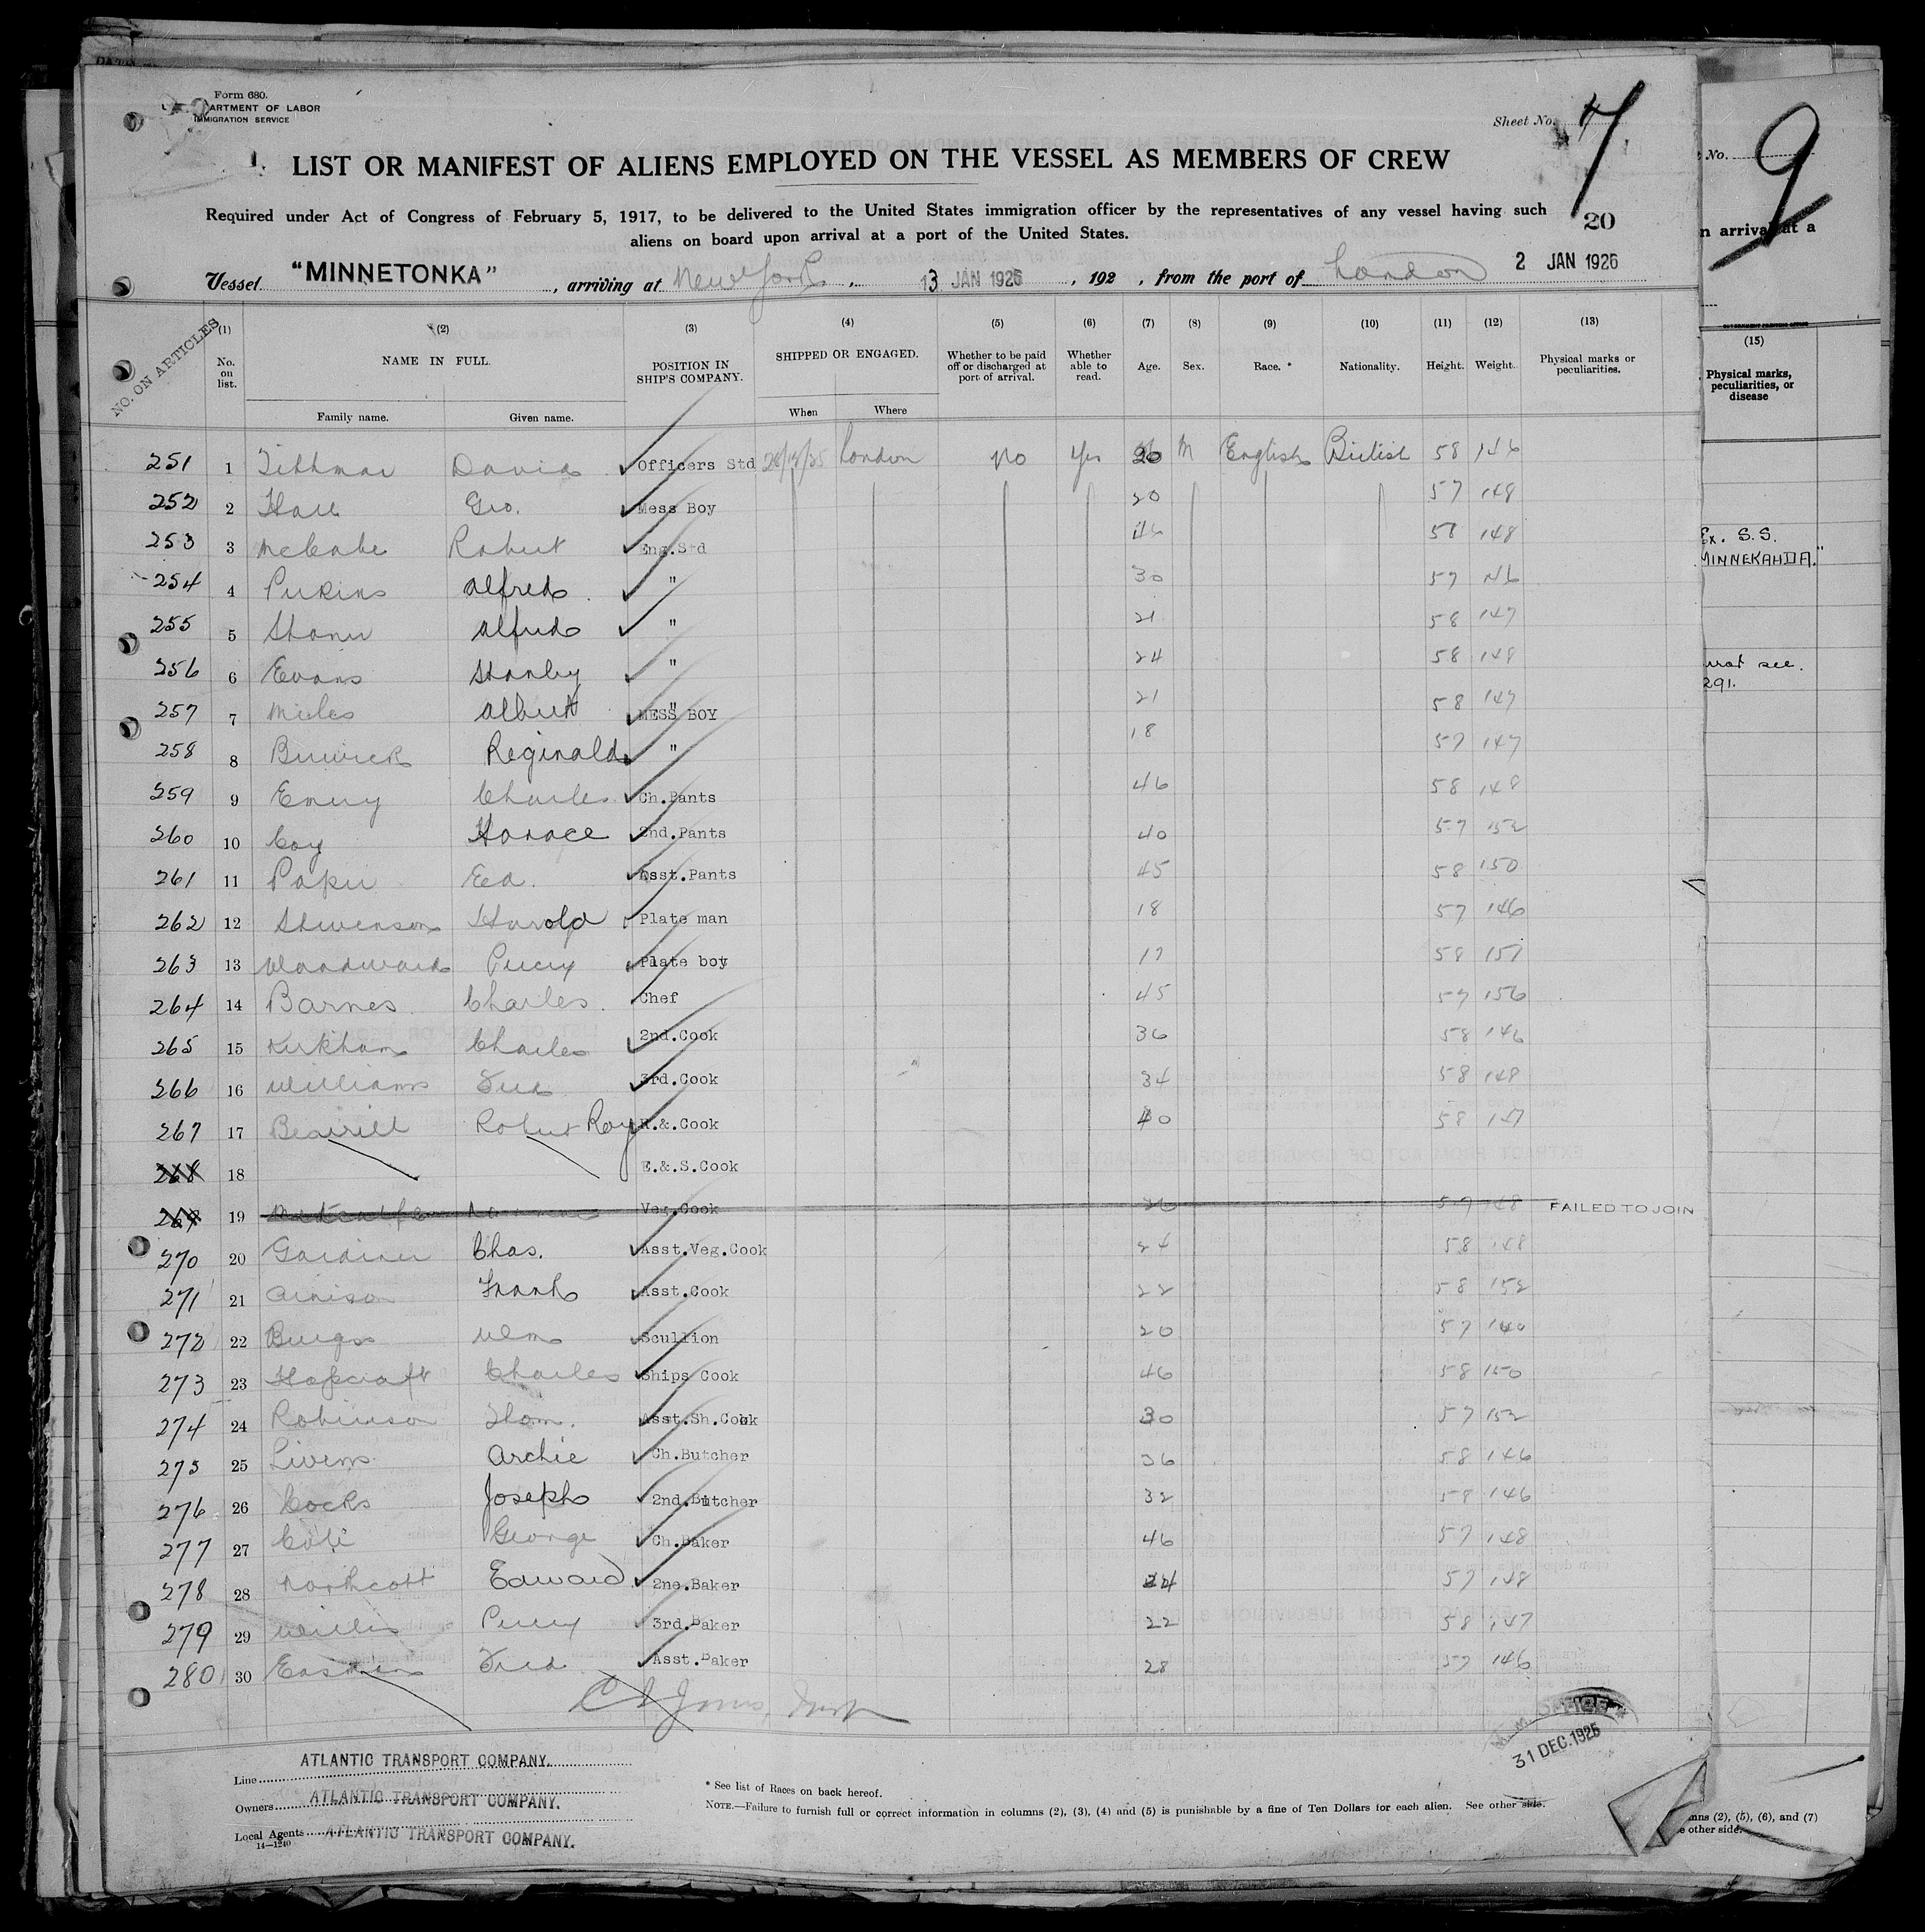 Form 680.
ARTMENT OF LABOR
IMMIGRATION SERVICE
Sheet No. 7
LIST OR MANIFEST OF ALIENS EMPLOYED ON THE VESSEL AS MEMBERS OF CREW
Required under Act of Congress of February 5, 1917, to be delivered to the United States immigration officer by the representatives of any vessel having such
aliens on board upon arrival at a port of the United States.
20
Vessel "MINNETONKA", arriving at New York, 13 JAN 1926, 192 , from the port of London 2 JAN 1926
NO. ON ARTICLES
(1) (2) (3) (4) (5) (6) (7) (8) (9) (10) (11) (12) (13)
No. on list. NAME IN FULL. POSITION IN SHIP'S COMPANY. SHIPPED OR ENGAGED. Whether to be paid off or discharged at port of arrival. Whether able to read. Age. Sex. Race. * Nationality. Height. Weight. Physical marks or peculiarities.
Family name. Given name. When Where
251 1 David Officers Std London No Yes M English British 58 146
252 2 Geo. Mess Boy 20 57 148
253 3 McCabe Robert Eng.Std 58 148
254 4 Perkins Alfred " 30 57
255 5 Alfred " 21 58 147
256 6 Evans Stanley " 24 58 148
257 7 Miles Albert MESS BOY " 21 58 147
258 8 Reginald " 18 57 147
259 9 Emery Charles Ch.Pants 46 58 148
260 10 Coy Horace 2nd.Pants 40 57 152
261 11 Ed. Asst.Pants 45 58 150
262 12 Stevenson Harold Plate man 18 57 146
263 13 Woodward Percy Plate boy 17 58 151
264 14 Barnes Charles Chef 45 57 156
265 15 Kirkham Charles 2nd.Cook 36 58 146
266 16 Williams Fred 3rd.Cook 34 58 148
267 17 Robert Roy R.&.Cook 40 58 147
268 18 E.&.S.Cook
269 19 Metcalfe Veg.Cook 26 57 148 FAILED TO JOIN
270 20 Gardiner Chas. Asst.Veg.Cook 24 58 148
271 21 Frank Asst.Cook 22 58 152
272 22 Wm Scullion 20 57 140
273 23 Hopcraft Charles Ships Cook 46 58 150
274 24 Robinson Thom. Asst.Sh.Cook 30 57 152
275 25 Livens Archie Ch.Butcher 36 58 146
276 26 Cocks Joseph 2nd.Butcher 32 58 146
277 27 Cole George Ch.Baker 46 57 148
278 28 Northcott Edward 2ne.Baker 57 148
279 29 Willis Percy 3rd.Baker 22 58 147
280 30 Fred Asst.Baker 28 57 146
OFFICE
31 DEC.1925
Line ATLANTIC TRANSPORT COMPANY.
Owners ATLANTIC TRANSPORT COMPANY.
Local Agents ATLANTIC TRANSPORT COMPANY.
14—1240
* See list of Races on back hereof.
NOTE.—Failure to furnish full or correct information in columns (2), (3), (4) and (5) is punishable by a fine of Ten Dollars for each alien. See other side.
No. 9
n arrival at a
GOVERNMENT PRINTING OFFICE
(15)
Physical marks,
peculiarities, or
disease
Ex. S.S.
MINNEKAHDA."
see.
291.
mns (2), (5), (6), and (7)
e other side.